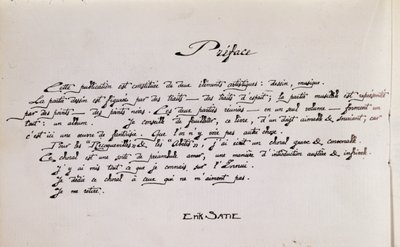 Préface
Cette publication est constituée de deux éléments artistiques : dessin, musique.
La partie dessin est figurée par des traits — des traits d'esprit ; la partie musicale est représentée
par des points — des points noirs. Ces deux parties réunies — en un seul volume — forment un
tout : un album. Je conseille de feuilleter, ce livre, d'un doigt aimable & souriant ; car
c'est ici une œuvre de fantaisie. Que l'on n'y voie pas autre chose.
Pour les "Recroquevillés" & les "Abêtis", j'ai écrit un choral grave & convenable.
Ce choral est une sorte de préambule amer, une manière d'introduction austère & infrivole.
J'y ai mis tout ce que je connais sur l'Ennui.
Je dédie ce choral à ceux qui ne m'aiment pas.
Je me retire.
ERIK SATIE